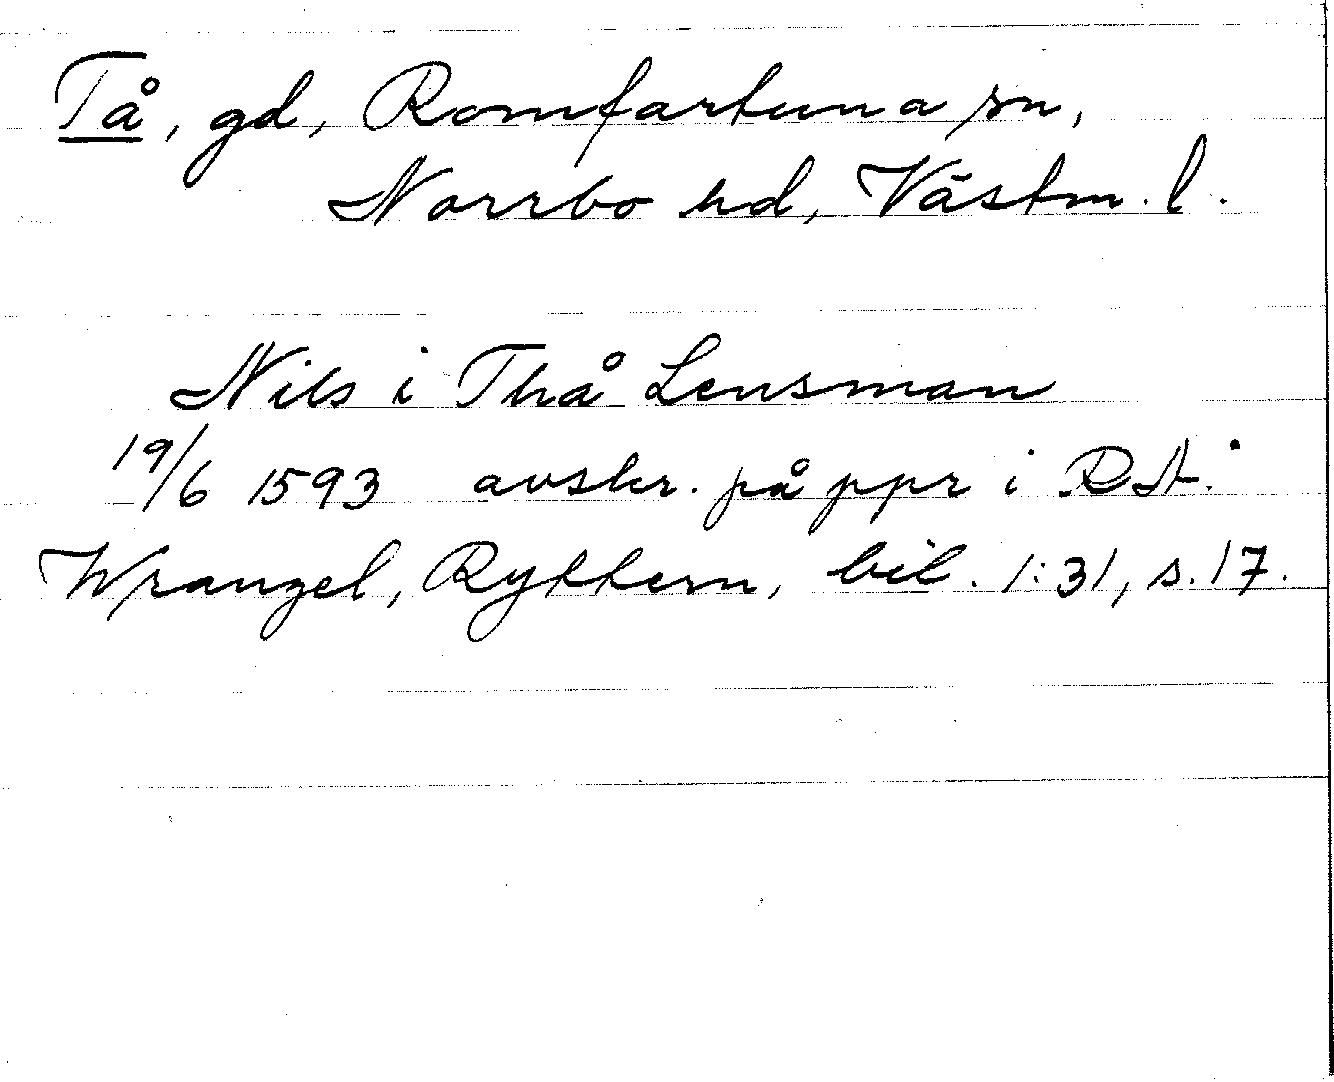 Tå, gd, Romfartuna sn,
Norrbo hd, Västm. l.
Nils i Thå Lensman
19/6 1593 avskr. på ppr i RA.
Wrangel, Ryttern, bil. 1:31, s. 17.